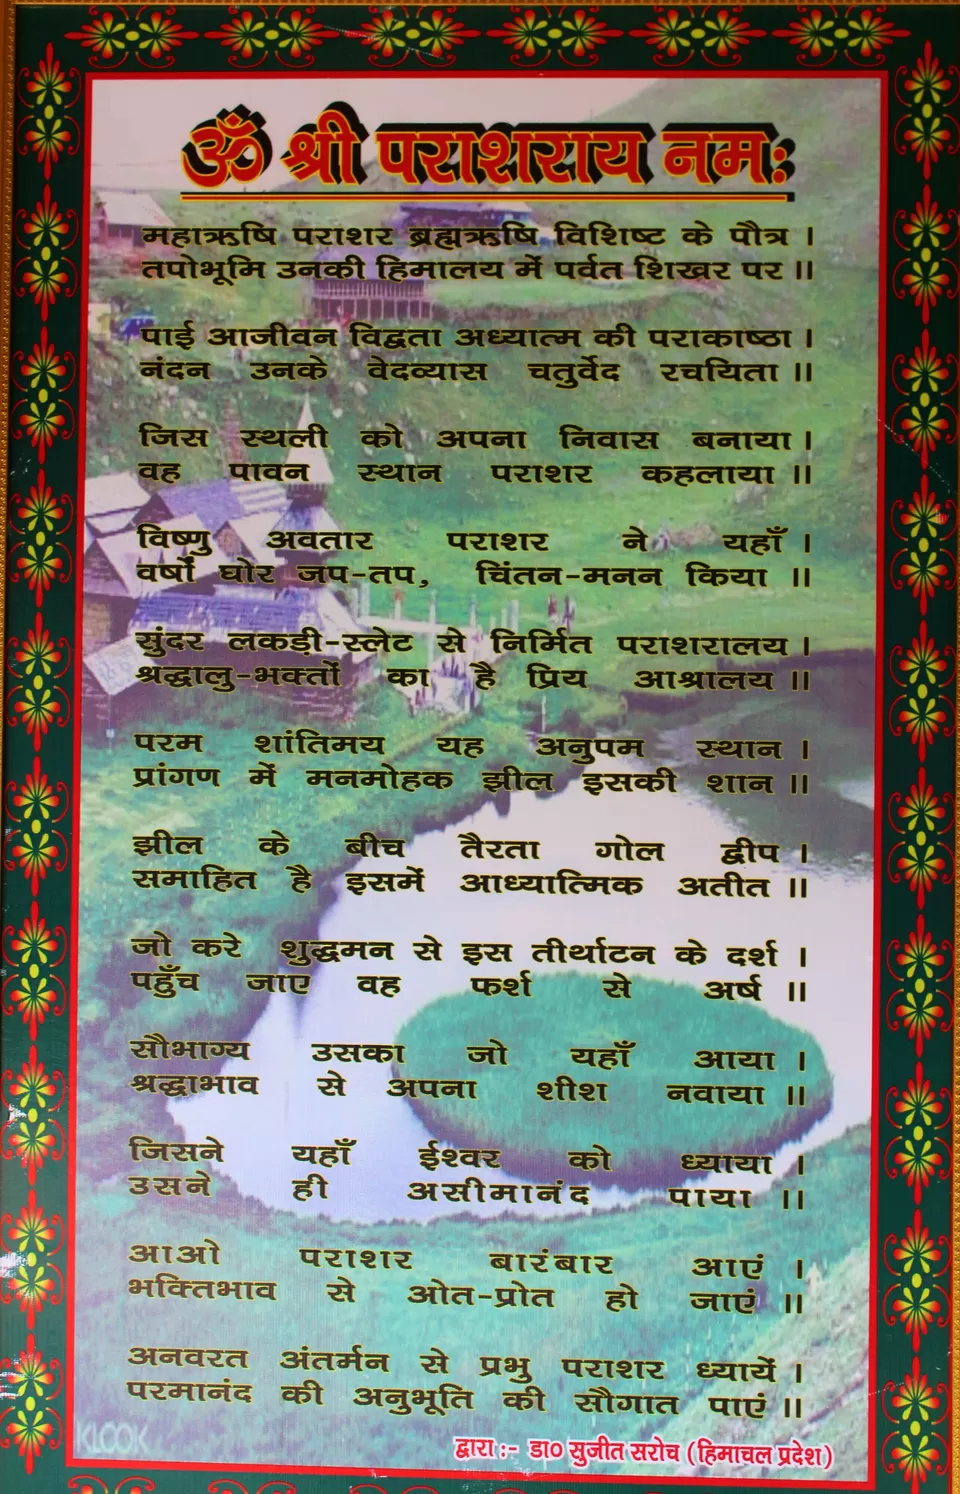 ॐ श्री पराशराय नमः
महाऋषि पराशर ब्रह्मऋषि विशिष्ट के पौत्र ।
तपोभूमि उनकी हिमालय में पर्वत शिखर पर ॥
पाई आजीवन विद्वता अध्यात्म की पराकाष्ठा ।
नंदन उनके वेदव्यास चतुर्वेद रचयिता ॥
जिस स्थली को अपना निवास बनाया ।
वह पावन स्थान पराशर कहलाया ॥
विष्णु अवतार पराशर ने यहाँ ।
वर्षों घोर जप-तप, चिंतन-मनन किया ॥
सुंदर लकड़ी-स्लेट से निर्मित पराशरालय ।
श्रद्धालु-भक्तों का है प्रिय आश्रालय ॥
परम शांतिमय यह अनुपम स्थान ।
प्रांगण में मनमोहक झील इसकी शान ॥
झील के बीच तैरता गोल द्वीप ।
समाहित है इसमें आध्यात्मिक अतीत ॥
जो करे शुद्धमन से इस तीर्थाटन के दर्श ।
पहुँच जाए वह फर्श से अर्ष ॥
सौभाग्य उसका जो यहाँ आया ।
श्रद्धाभाव से अपना शीश नवाया ॥
जिसने यहाँ ईश्वर को ध्याया ।
उसने ही असीमानंद पाया ॥
आओ पराशर बारंबार आएं ।
भक्तिभाव से ओत-प्रोत हो जाएं ॥
अनवरत अंतर्मन से प्रभु पराशर ध्यायें ।
परमानंद की अनुभूति की सौगात पाएं ॥
KLOOK
द्वारा :- डा० सुजीत सरोच (हिमाचल प्रदेश)